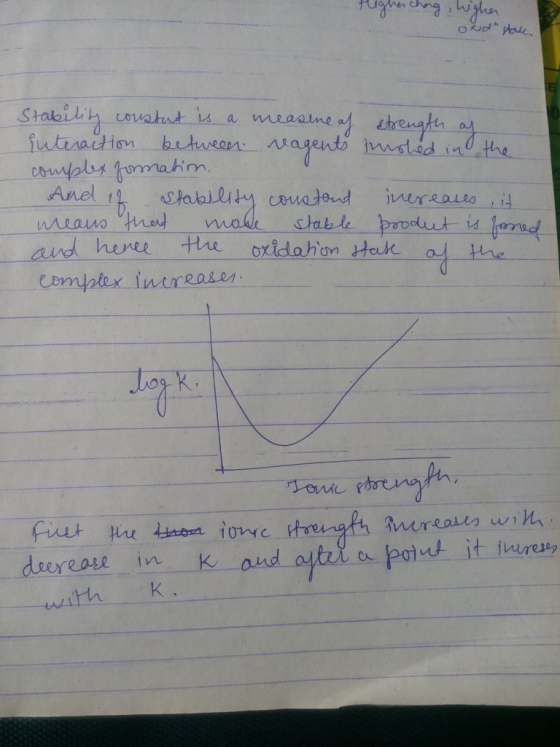 Higher charg, higher
oxidn state.
Stability constant is a measure of strength of
interaction between reagents involed in the
complex formation.
And if stability constand increases, it
means that more stable product is formed
and hence the oxidation state of the
complex increases.
log K.
Ionic strength.
First the ionic strength increases with
decrease in K and after a point it increses
with K.